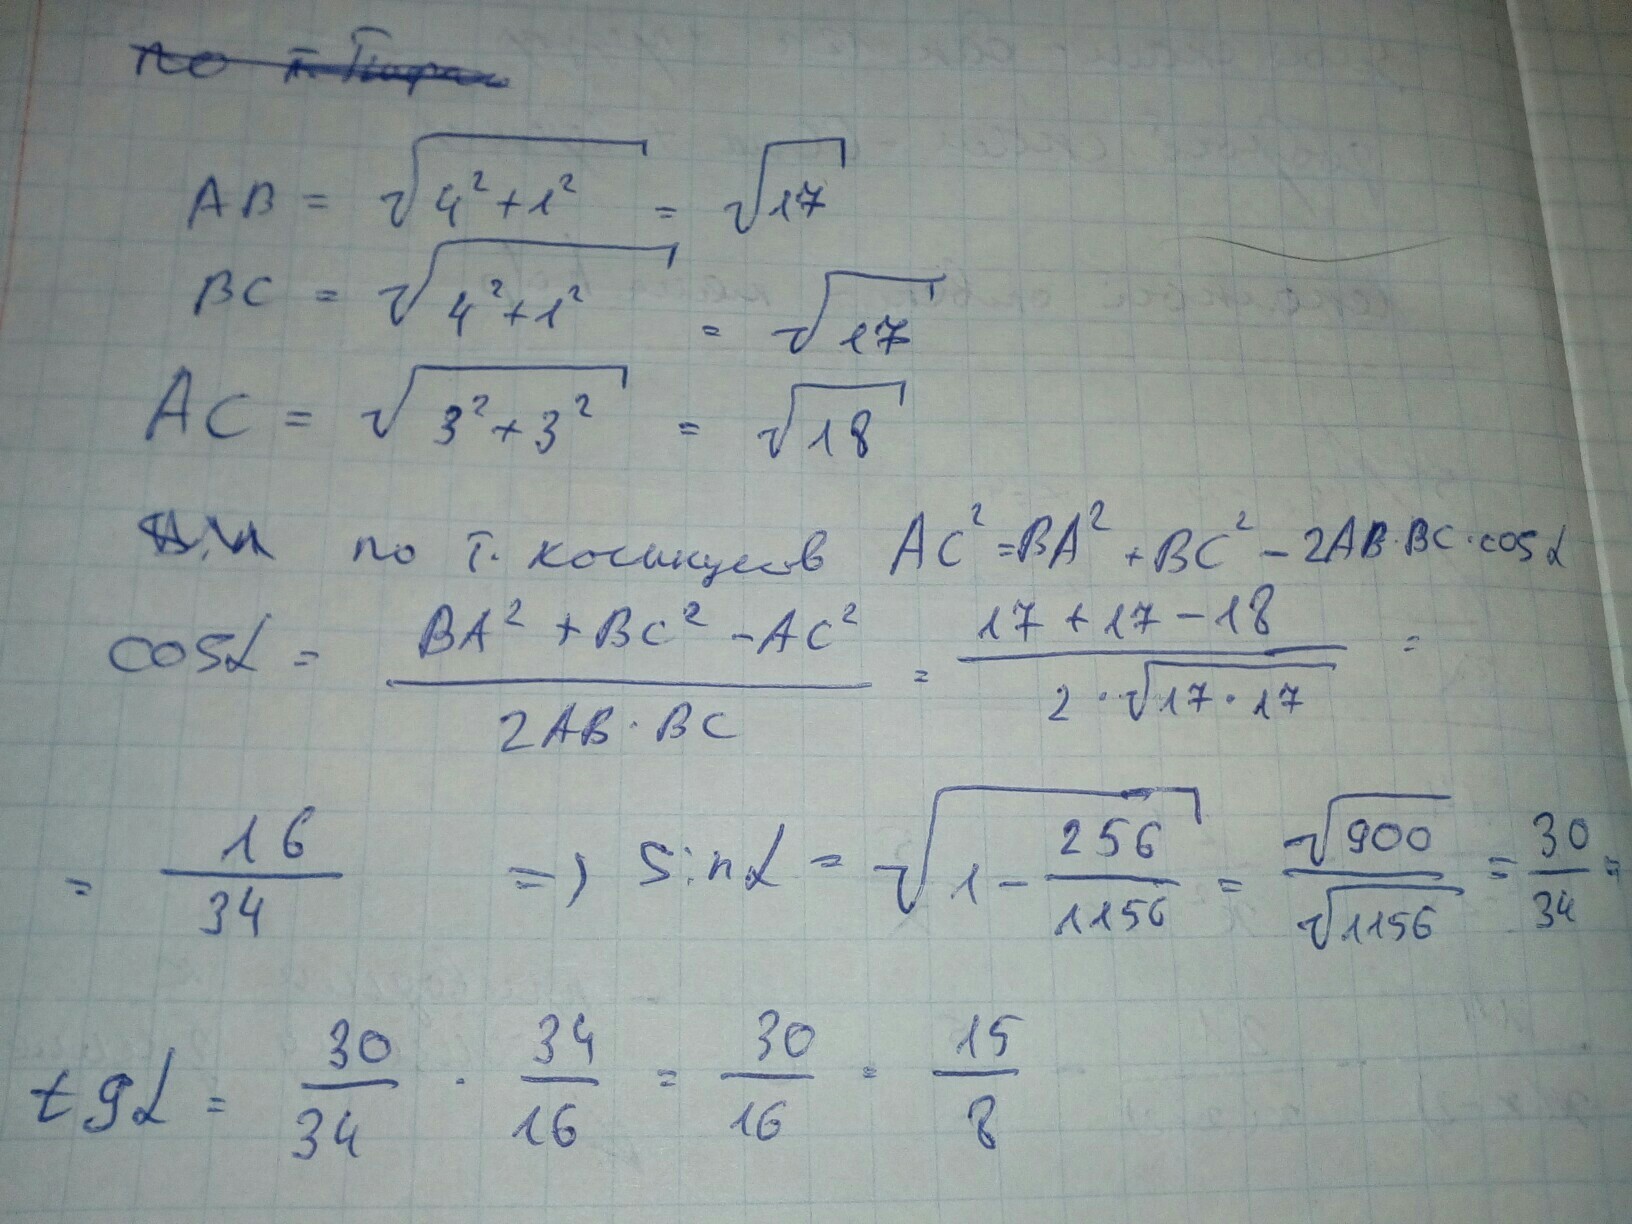 по т. Пифаг
AB = √(4² + 1²) = √17
BC = √(4² + 1²) = √17
AC = √(3² + 3²) = √18
по т. косинусов AC² = BA² + BC² - 2AB·BC·cosα
cosα = (BA² + BC² - AC²)/(2AB·BC) = (17 + 17 - 18)/(2·√(17·17)) =
= 16/34 => sinα = √(1 - 256/1156) = √900/√1156 = 30/34 =
tgα = 30/34 · 34/16 = 30/16 = 15/8